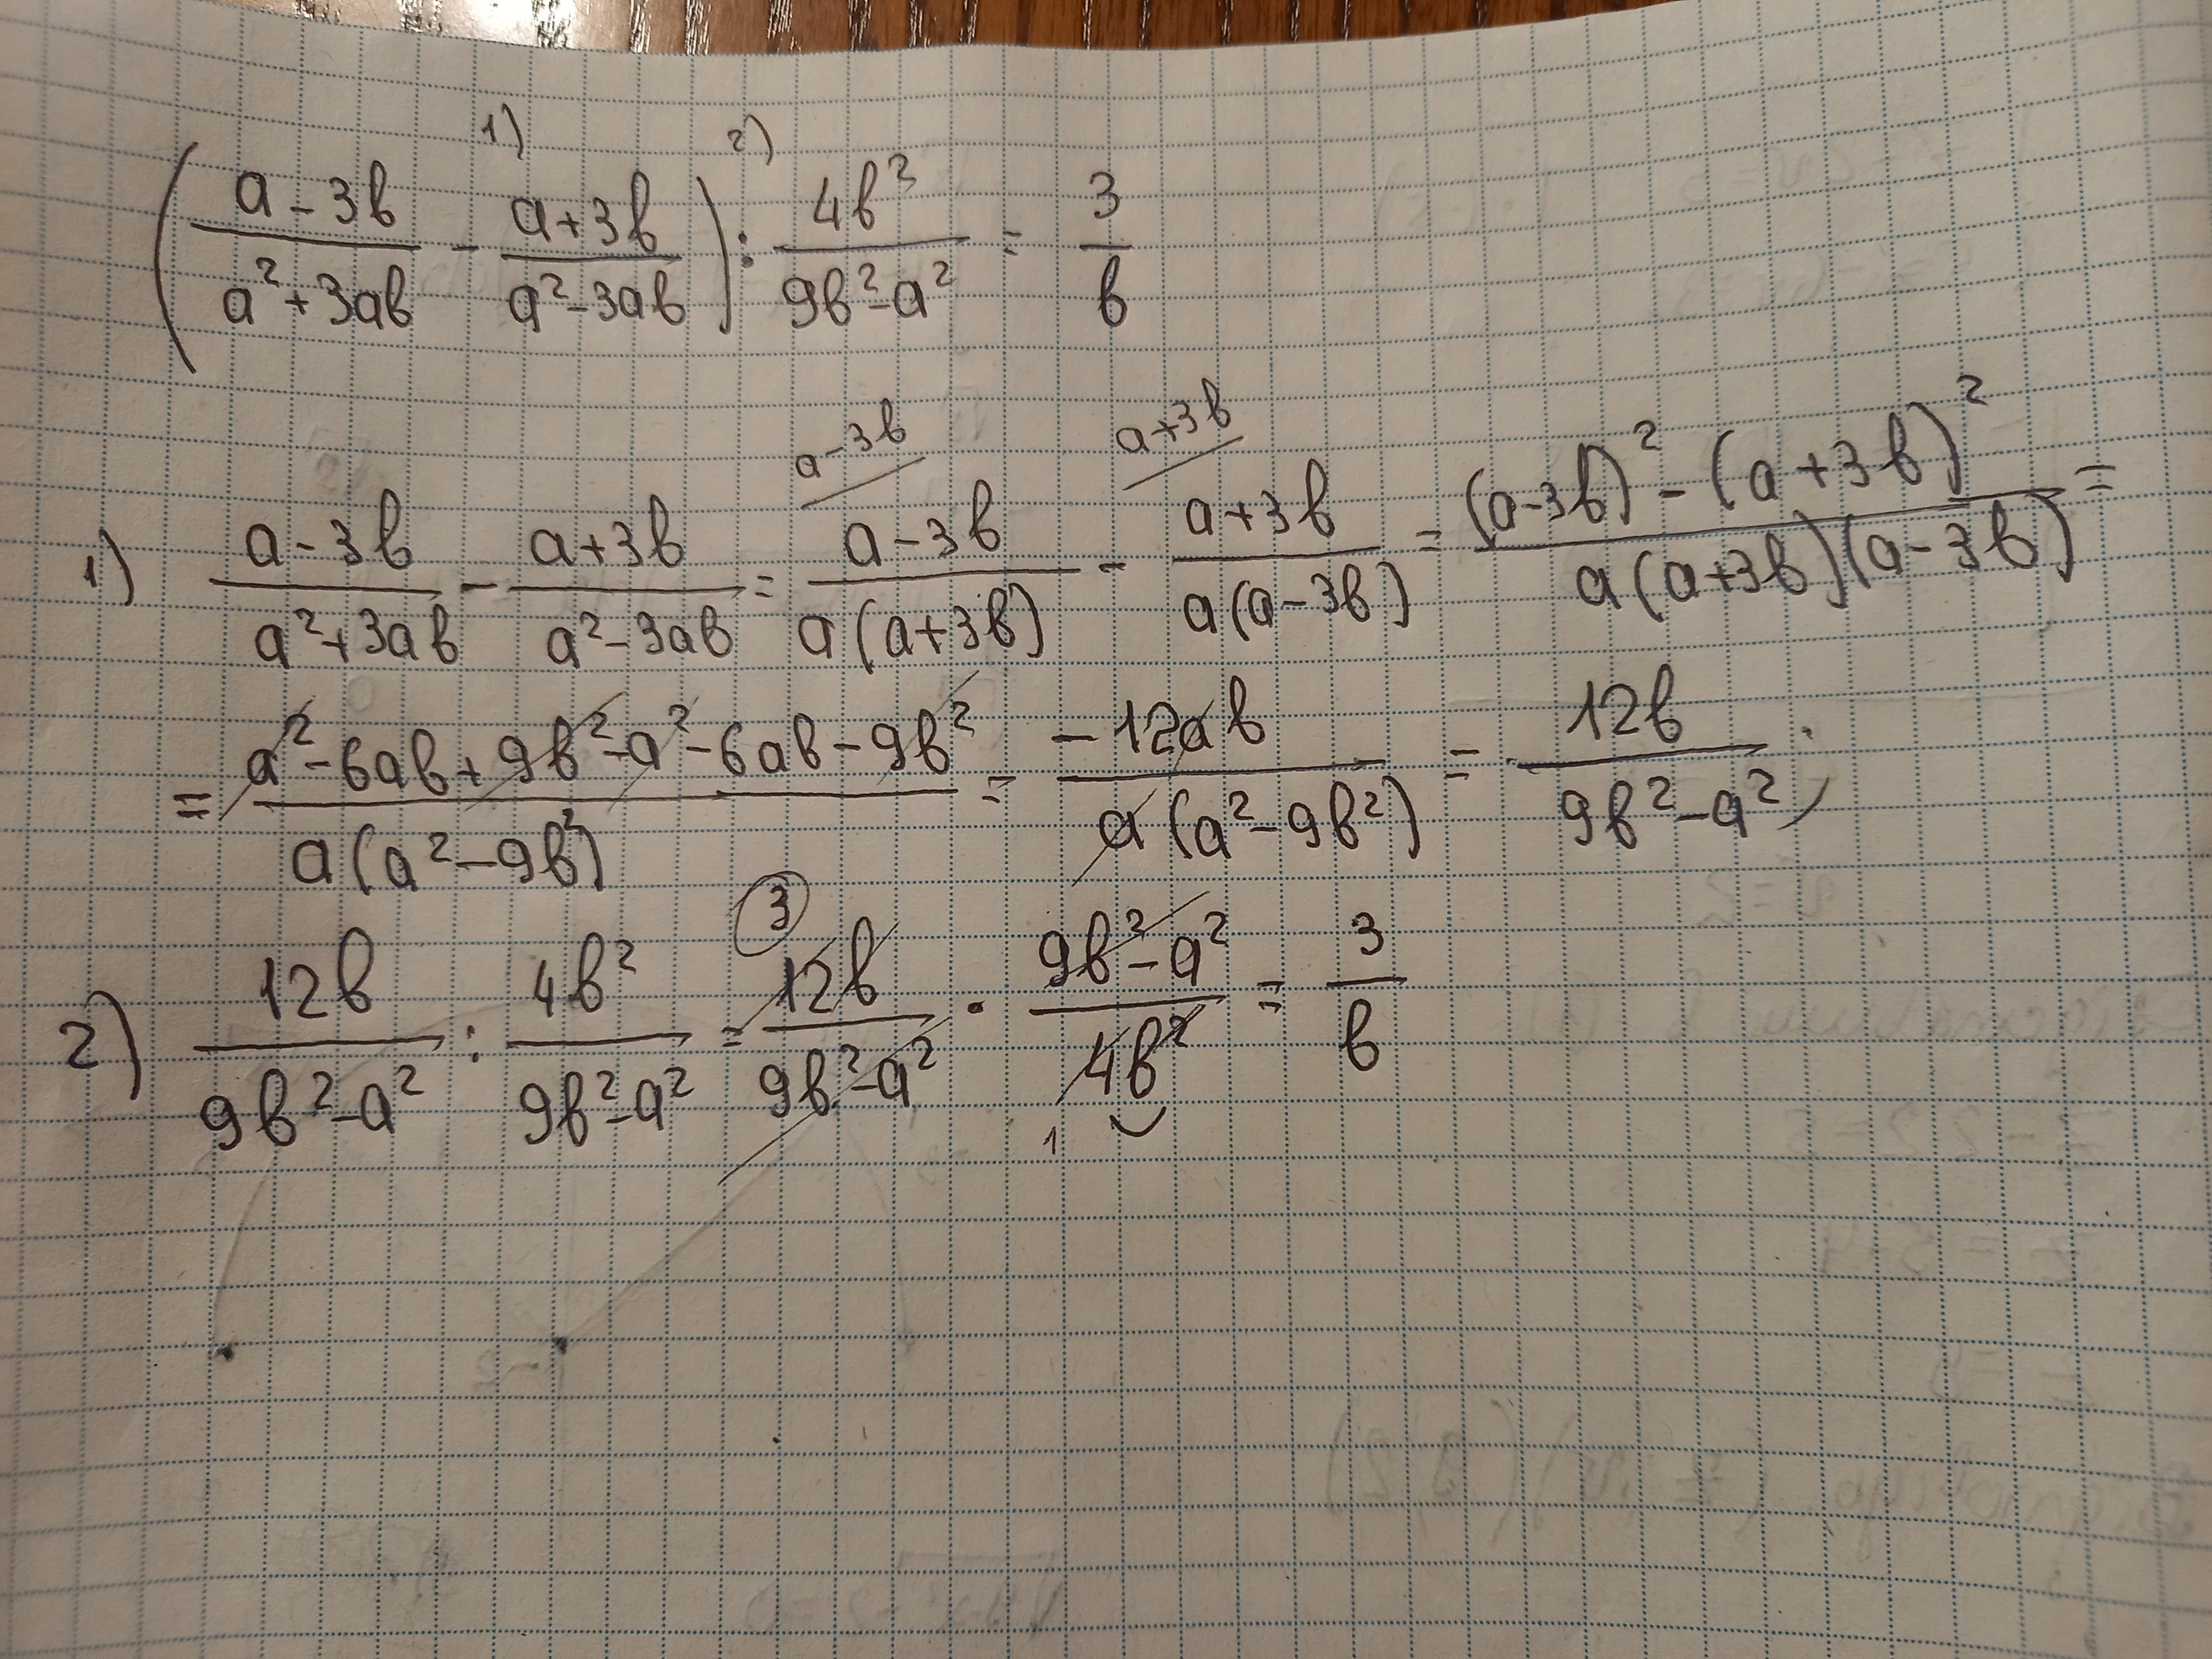 1) 2)
(a-3b/a²+3ab - a+3b/a²-3ab) : 4b²/9b²-a² = 3/b
a-3b a+3b
1) a-3b/a²+3ab - a+3b/a²-3ab = a-3b/a(a+3b) - a+3b/a(a-3b) = (a-3b)²-(a+3b)²/a(a+3b)(a-3b) =
= a²-6ab+9b²-a²-6ab-9b²/a(a²-9b²) = -12ab/a(a²-9b²) = 12b/9b²-a² ;
3
2) 12b/9b²-a² : 4b²/9b²-a² = 12b/9b²-a² · 9b²-a²/4b² = 3/b
1